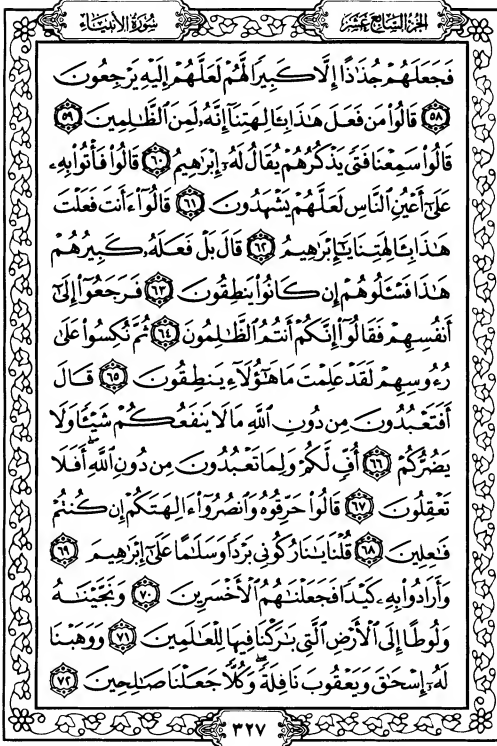 سُورَةُ الأَنبِيَاء الجُزْءُ السَّابِعَ عَشَرَ
فَجَعَلَهُمْ جُذَٰذًا إِلَّا كَبِيرًا لَّهُمْ لَعَلَّهُمْ إِلَيْهِ يَرْجِعُونَ
﴿٥٨﴾ قَالُوا۟ مَن فَعَلَ هَٰذَا بِـَٔالِهَتِنَآ إِنَّهُۥ لَمِنَ ٱلظَّٰلِمِينَ ﴿٥٩﴾
قَالُوا۟ سَمِعْنَا فَتًى يَذْكُرُهُمْ يُقَالُ لَهُۥٓ إِبْرَٰهِيمُ ﴿٦٠﴾ قَالُوا۟ فَأْتُوا۟ بِهِۦ
عَلَىٰٓ أَعْيُنِ ٱلنَّاسِ لَعَلَّهُمْ يَشْهَدُونَ ﴿٦١﴾ قَالُوٓا۟ ءَأَنتَ فَعَلْتَ
هَٰذَا بِـَٔالِهَتِنَا يَٰٓإِبْرَٰهِيمُ ﴿٦٢﴾ قَالَ بَلْ فَعَلَهُۥ كَبِيرُهُمْ
هَٰذَا فَسْـَٔلُوهُمْ إِن كَانُوا۟ يَنطِقُونَ ﴿٦٣﴾ فَرَجَعُوٓا۟ إِلَىٰٓ
أَنفُسِهِمْ فَقَالُوٓا۟ إِنَّكُمْ أَنتُمُ ٱلظَّٰلِمُونَ ﴿٦٤﴾ ثُمَّ نُكِسُوا۟ عَلَىٰ
رُءُوسِهِمْ لَقَدْ عَلِمْتَ مَا هَٰٓؤُلَآءِ يَنطِقُونَ ﴿٦٥﴾ قَالَ
أَفَتَعْبُدُونَ مِن دُونِ ٱللَّهِ مَا لَا يَنفَعُكُمْ شَيْـًٔا وَلَا
يَضُرُّكُمْ ﴿٦٦﴾ أُفٍّ لَّكُمْ وَلِمَا تَعْبُدُونَ مِن دُونِ ٱللَّهِ ۖ أَفَلَا
تَعْقِلُونَ ﴿٦٧﴾ قَالُوا۟ حَرِّقُوهُ وَٱنصُرُوٓا۟ ءَالِهَتَكُمْ إِن كُنتُمْ
فَٰعِلِينَ ﴿٦٨﴾ قُلْنَا يَٰنَارُ كُونِى بَرْدًا وَسَلَٰمًا عَلَىٰٓ إِبْرَٰهِيمَ ﴿٦٩﴾
وَأَرَادُوا۟ بِهِۦ كَيْدًا فَجَعَلْنَٰهُمُ ٱلْأَخْسَرِينَ ﴿٧٠﴾ وَنَجَّيْنَٰهُ
وَلُوطًا إِلَى ٱلْأَرْضِ ٱلَّتِى بَٰرَكْنَا فِيهَا لِلْعَٰلَمِينَ ﴿٧١﴾ وَوَهَبْنَا
لَهُۥٓ إِسْحَٰقَ وَيَعْقُوبَ نَافِلَةً ۖ وَكُلًّا جَعَلْنَا صَٰلِحِينَ ﴿٧٢﴾
٣٢٧